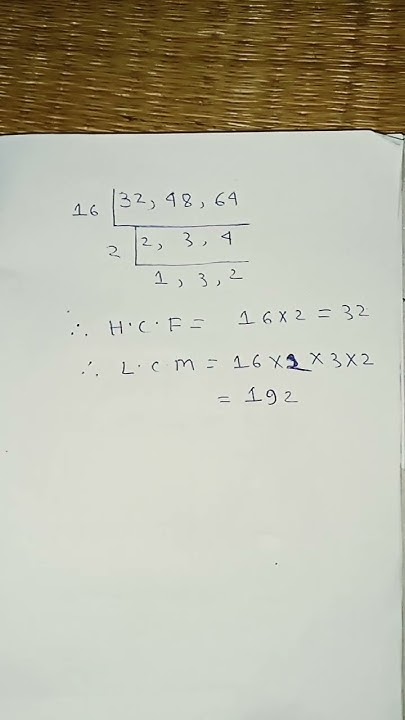 16 | 32, 48, 64
2 | 2, 3, 4
1, 3, 2
∴ H.C.F = 16×2 = 32
∴ L.C M = 16×2×3×2
= 192